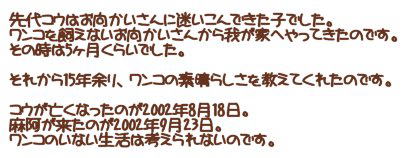 先代コウはお向かいさんに迷いこんできた子でした。
ワンコを飼えないお向かいさんから我が家へやってきたのです。
その時は5ヶ月くらいでした。
それから15年余り、ワンコの素晴らしさを教えてくれたのです。
コウが亡くなったのが2002年8月18日。
麻阿が来たのが2002年9月23日。
ワンコのいない生活は考えられないのです。